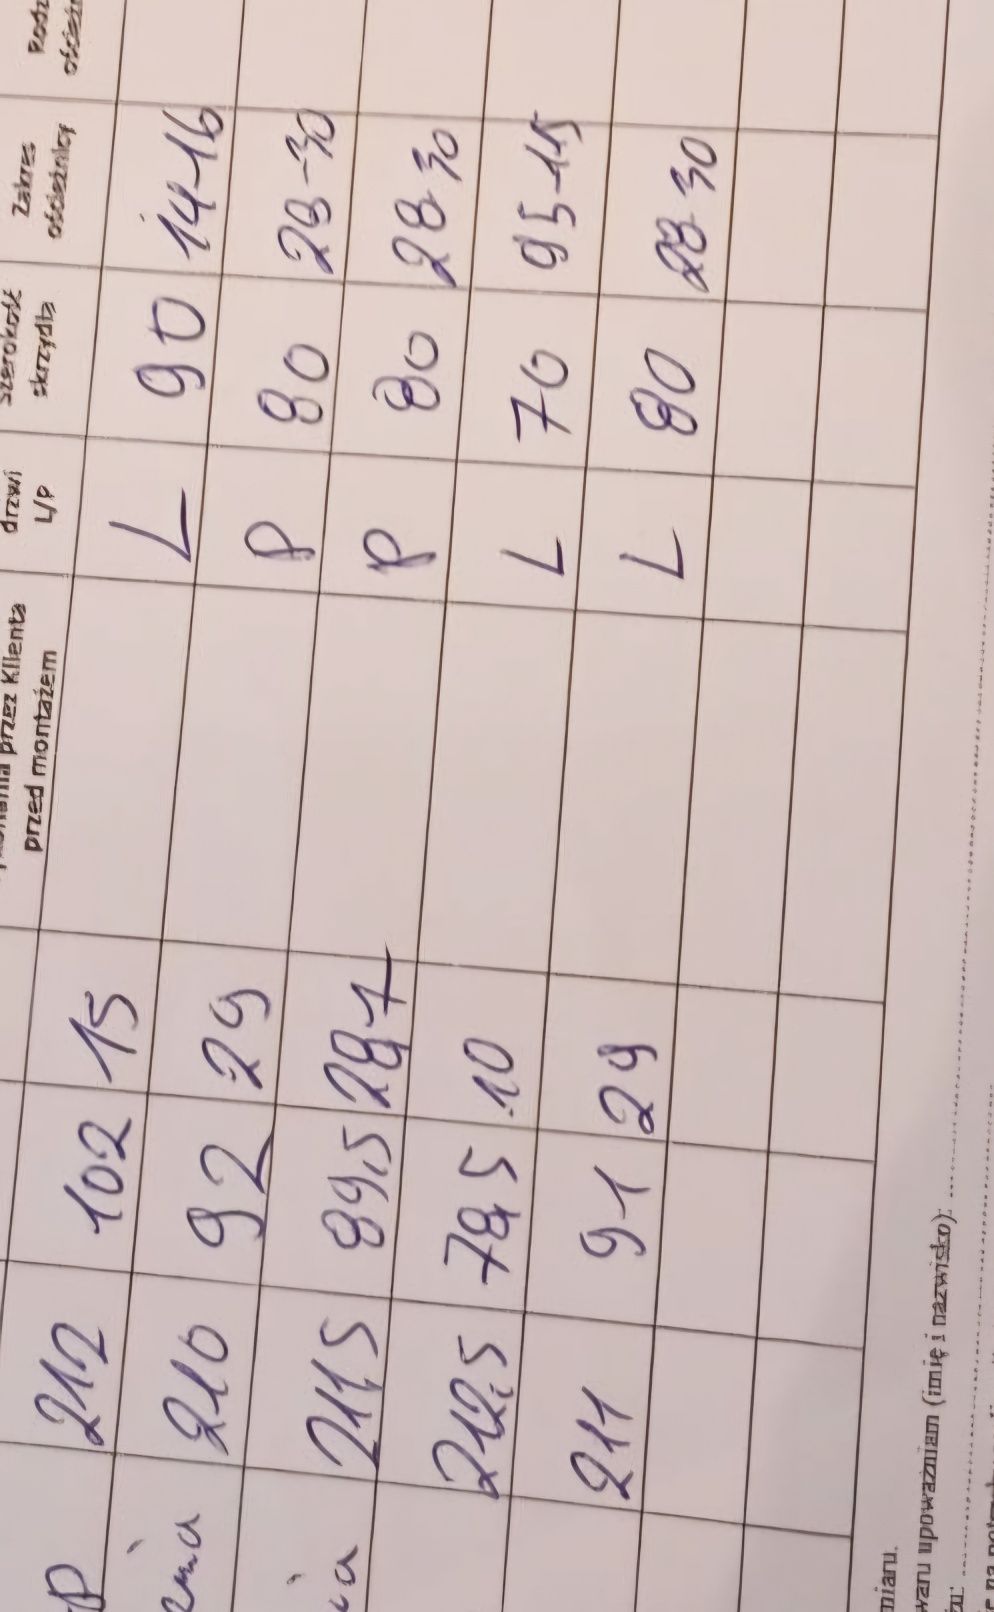 przez Klienta
przed montażem
drzwi
L/P
Szerokość
skrzydła
Zakres
ościeżnicy
P 212 102 15 L 90 14-16
210 92 29 P 80 28-30
211,5 89,5 28,7 P 80 28-30
212,5 78,5 10 L 70 95-115
211 91 29 L 80 28-30
miaru.
upoważniam (imię i nazwisko):